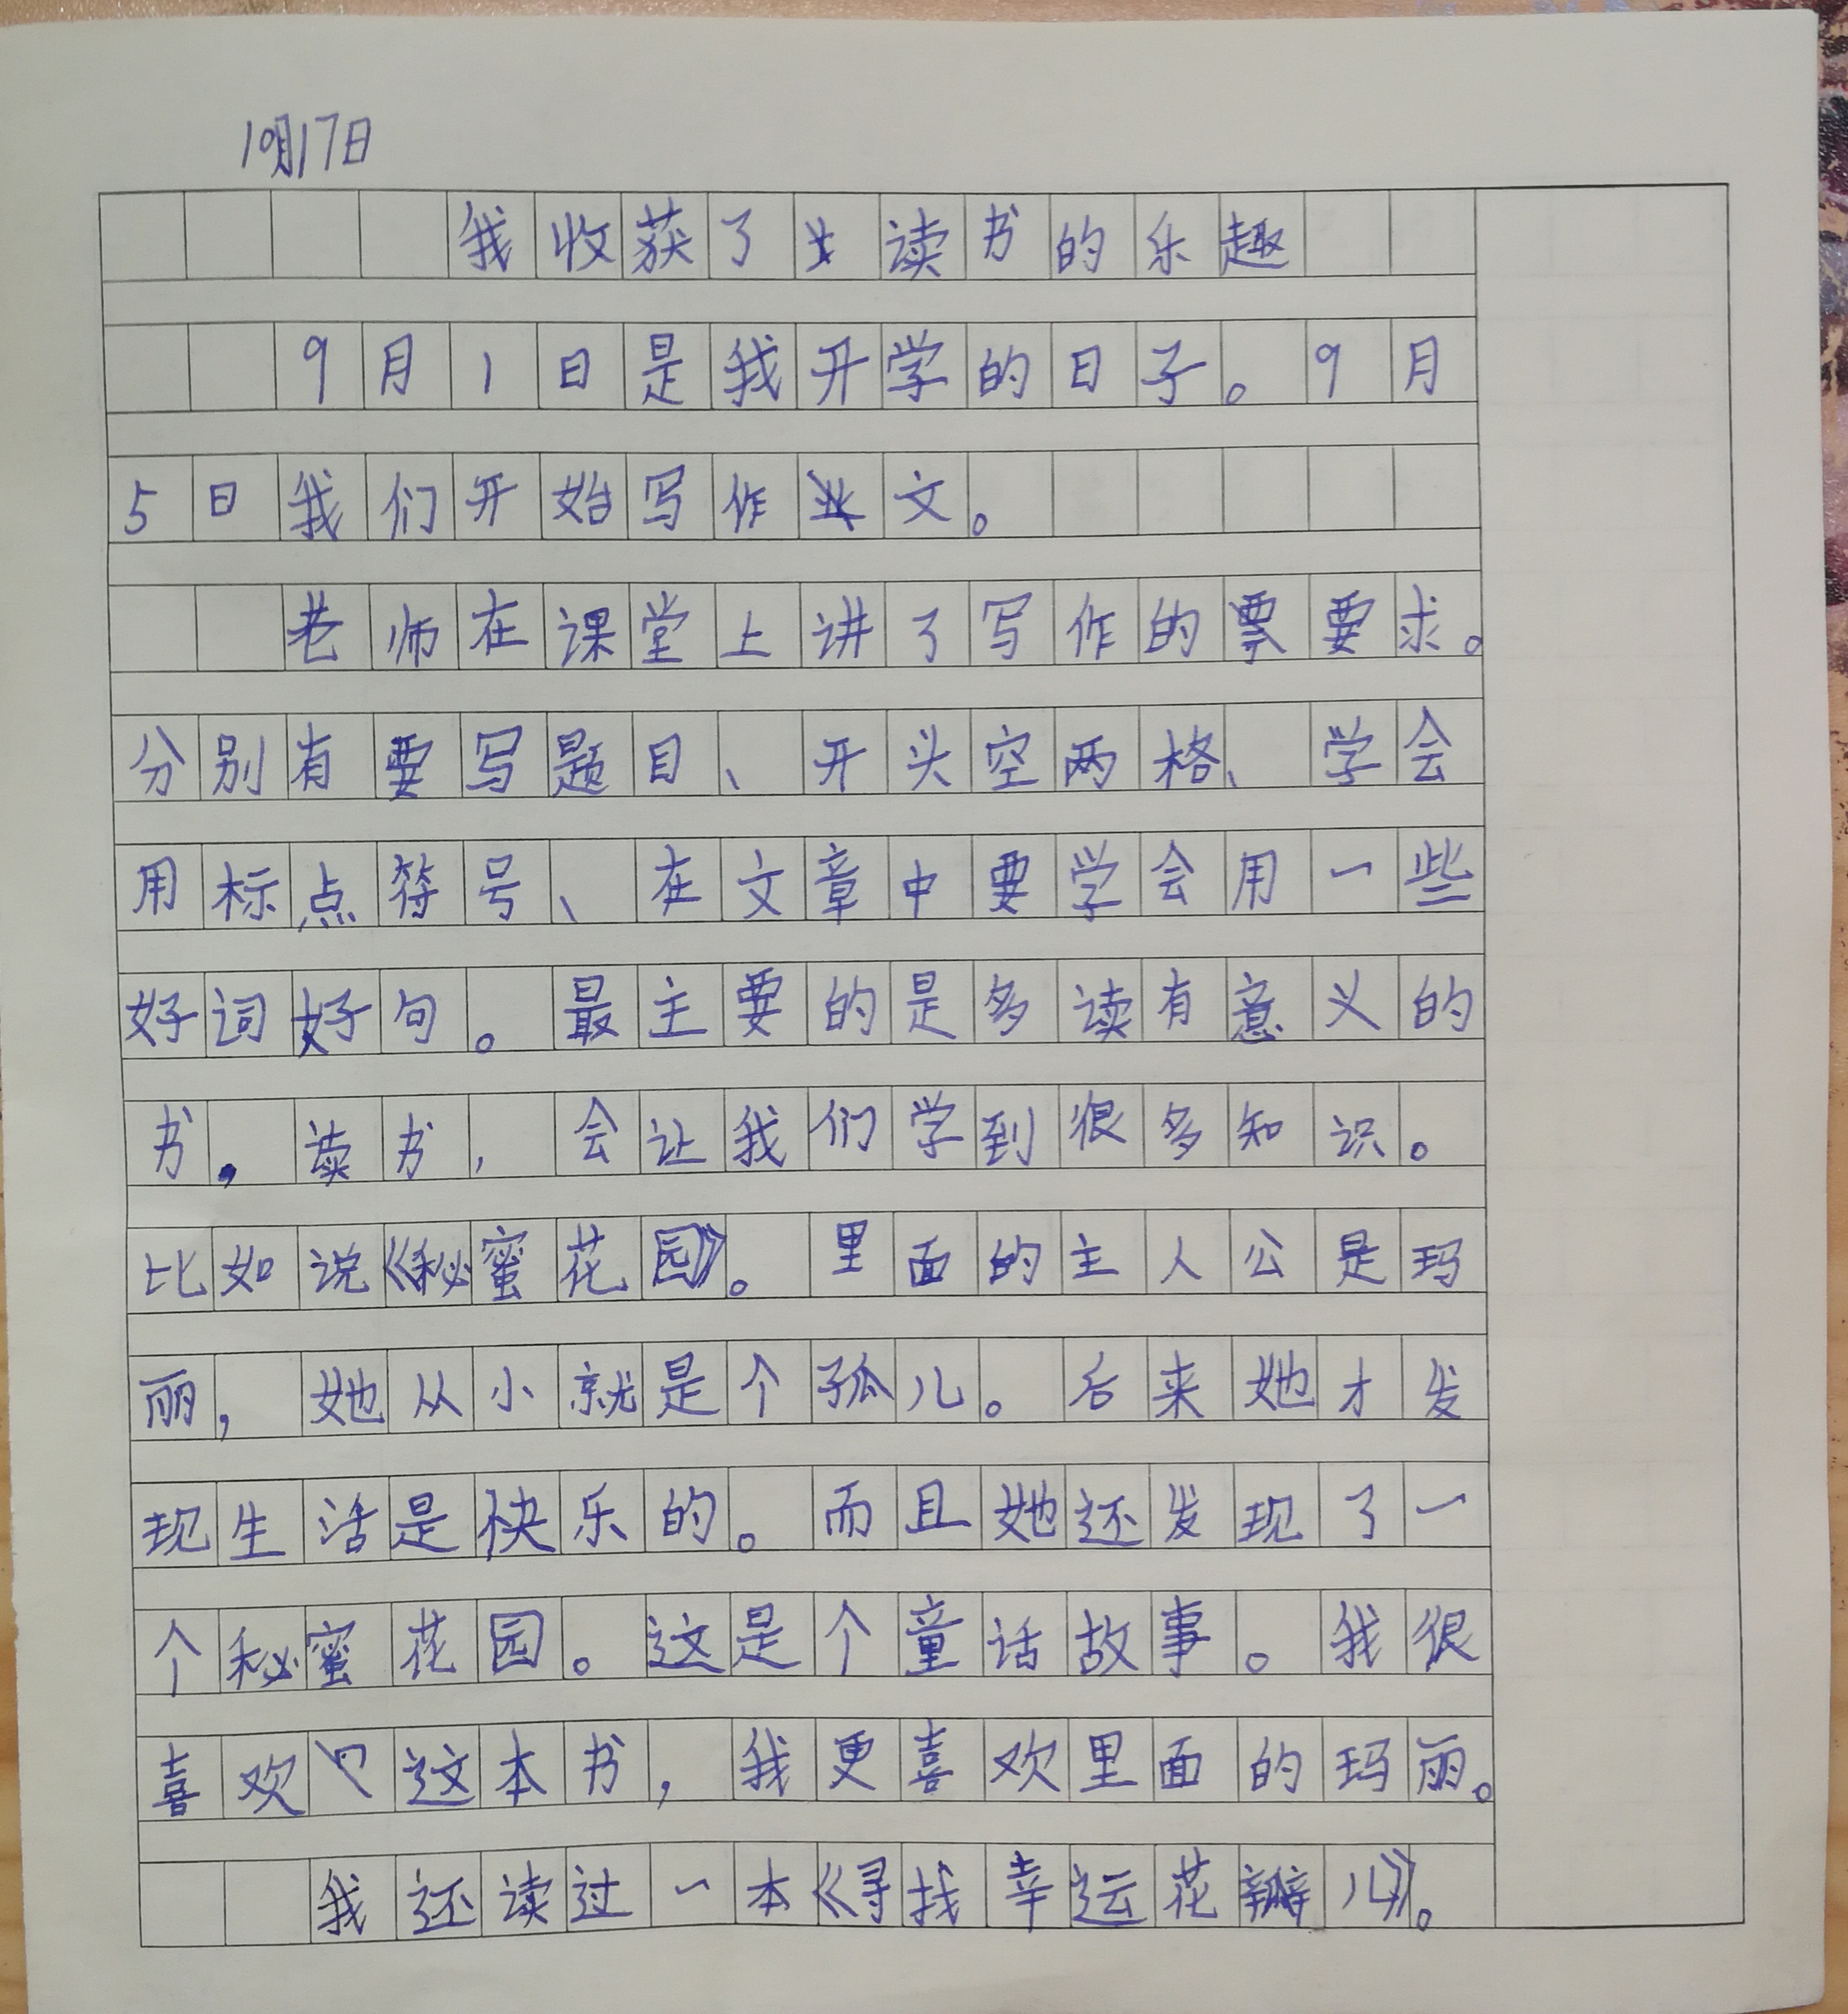 10月17日
我收获了读书的乐趣
9月1日是我开学的日子。9月
5日我们开始写作文。
老师在课堂上讲了写作的要求。
分别有要写题目、开头空两格、学会
用标点符号、在文章中要学会用一些
好词好句。最主要的是多读有意义的
书,读书,会让我们学到很多知识。
比如说《秘蜜花园》。里面的主人公是玛
丽,她从小就是个孤儿。后来她才发
现生活是快乐的。而且她还发现了一
个秘蜜花园。这是个童话故事。我很
喜欢这本书,我更喜欢里面的玛丽。
我还读过一本《寻找幸运花瓣儿》。